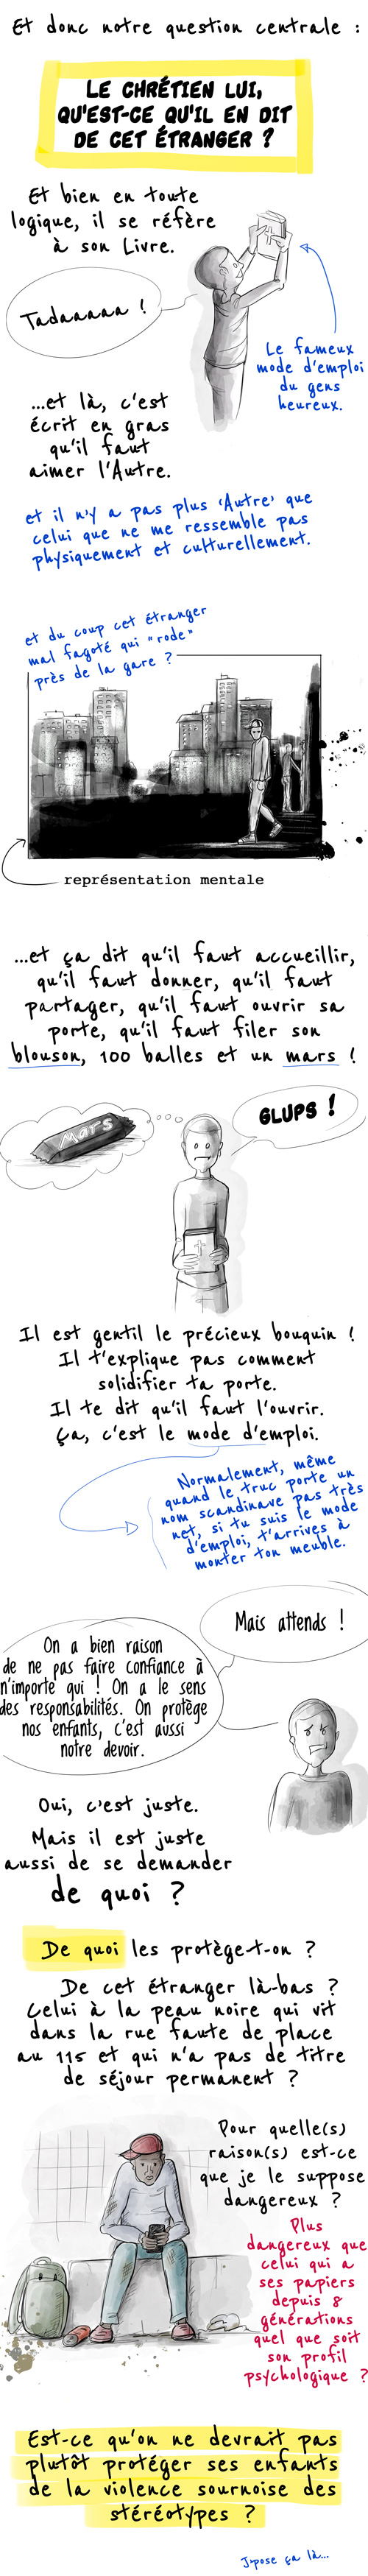 Et donc notre question centrale :
LE CHRÉTIEN LUI,
QU'EST-CE QU'IL EN DIT
DE CET ÉTRANGER ?
Et bien en toute
logique, il se réfère
à son Livre.
Tadaaaaa !
Le fameux
mode d'emploi
du gens
heureux.
...et là, c'est
écrit en gras
qu'il faut
aimer l'Autre.
et il n'y a pas plus 'Autre' que
celui que ne me ressemble pas
physiquement et culturellement.
et du coup cet étranger
mal fagoté qui "rode"
près de la gare ?
représentation mentale
...et ça dit qu'il faut accueillir,
qu'il faut donner, qu'il faut
partager, qu'il faut ouvrir sa
porte, qu'il faut filer son
blouson, 100 balles et un mars !
Mars
GLUPS !
Il est gentil le précieux bouquin !
Il t'explique pas comment
solidifier ta porte.
Il te dit qu'il faut l'ouvrir.
Ça, c'est le mode d'emploi.
Normalement, même
quand le truc porte un
nom scandinave pas très
net, si tu suis le mode
d'emploi, t'arrives à
monter ton meuble.
Mais attends !
On a bien raison
de ne pas faire confiance à
n'importe qui ! On a le sens
des responsabilités. On protège
nos enfants, c'est aussi
notre devoir.
Oui, c'est juste.
Mais il est juste
aussi de se demander
de quoi ?
De quoi les protège-t-on ?
De cet étranger là-bas ?
Celui à la peau noire qui vit
dans la rue faute de place
au 115 et qui n'a pas de titre
de séjour permanent ?
Pour quelle(s)
raison(s) est-ce
que je le suppose
dangereux ?
Plus
dangereux que
celui qui a
ses papiers
depuis 8
générations
quel que soit
son profil
psychologique ?
Est-ce qu'on ne devrait pas
plutôt protéger ses enfants
de la violence sournoise des
stéréotypes ?
J'pose ça là...